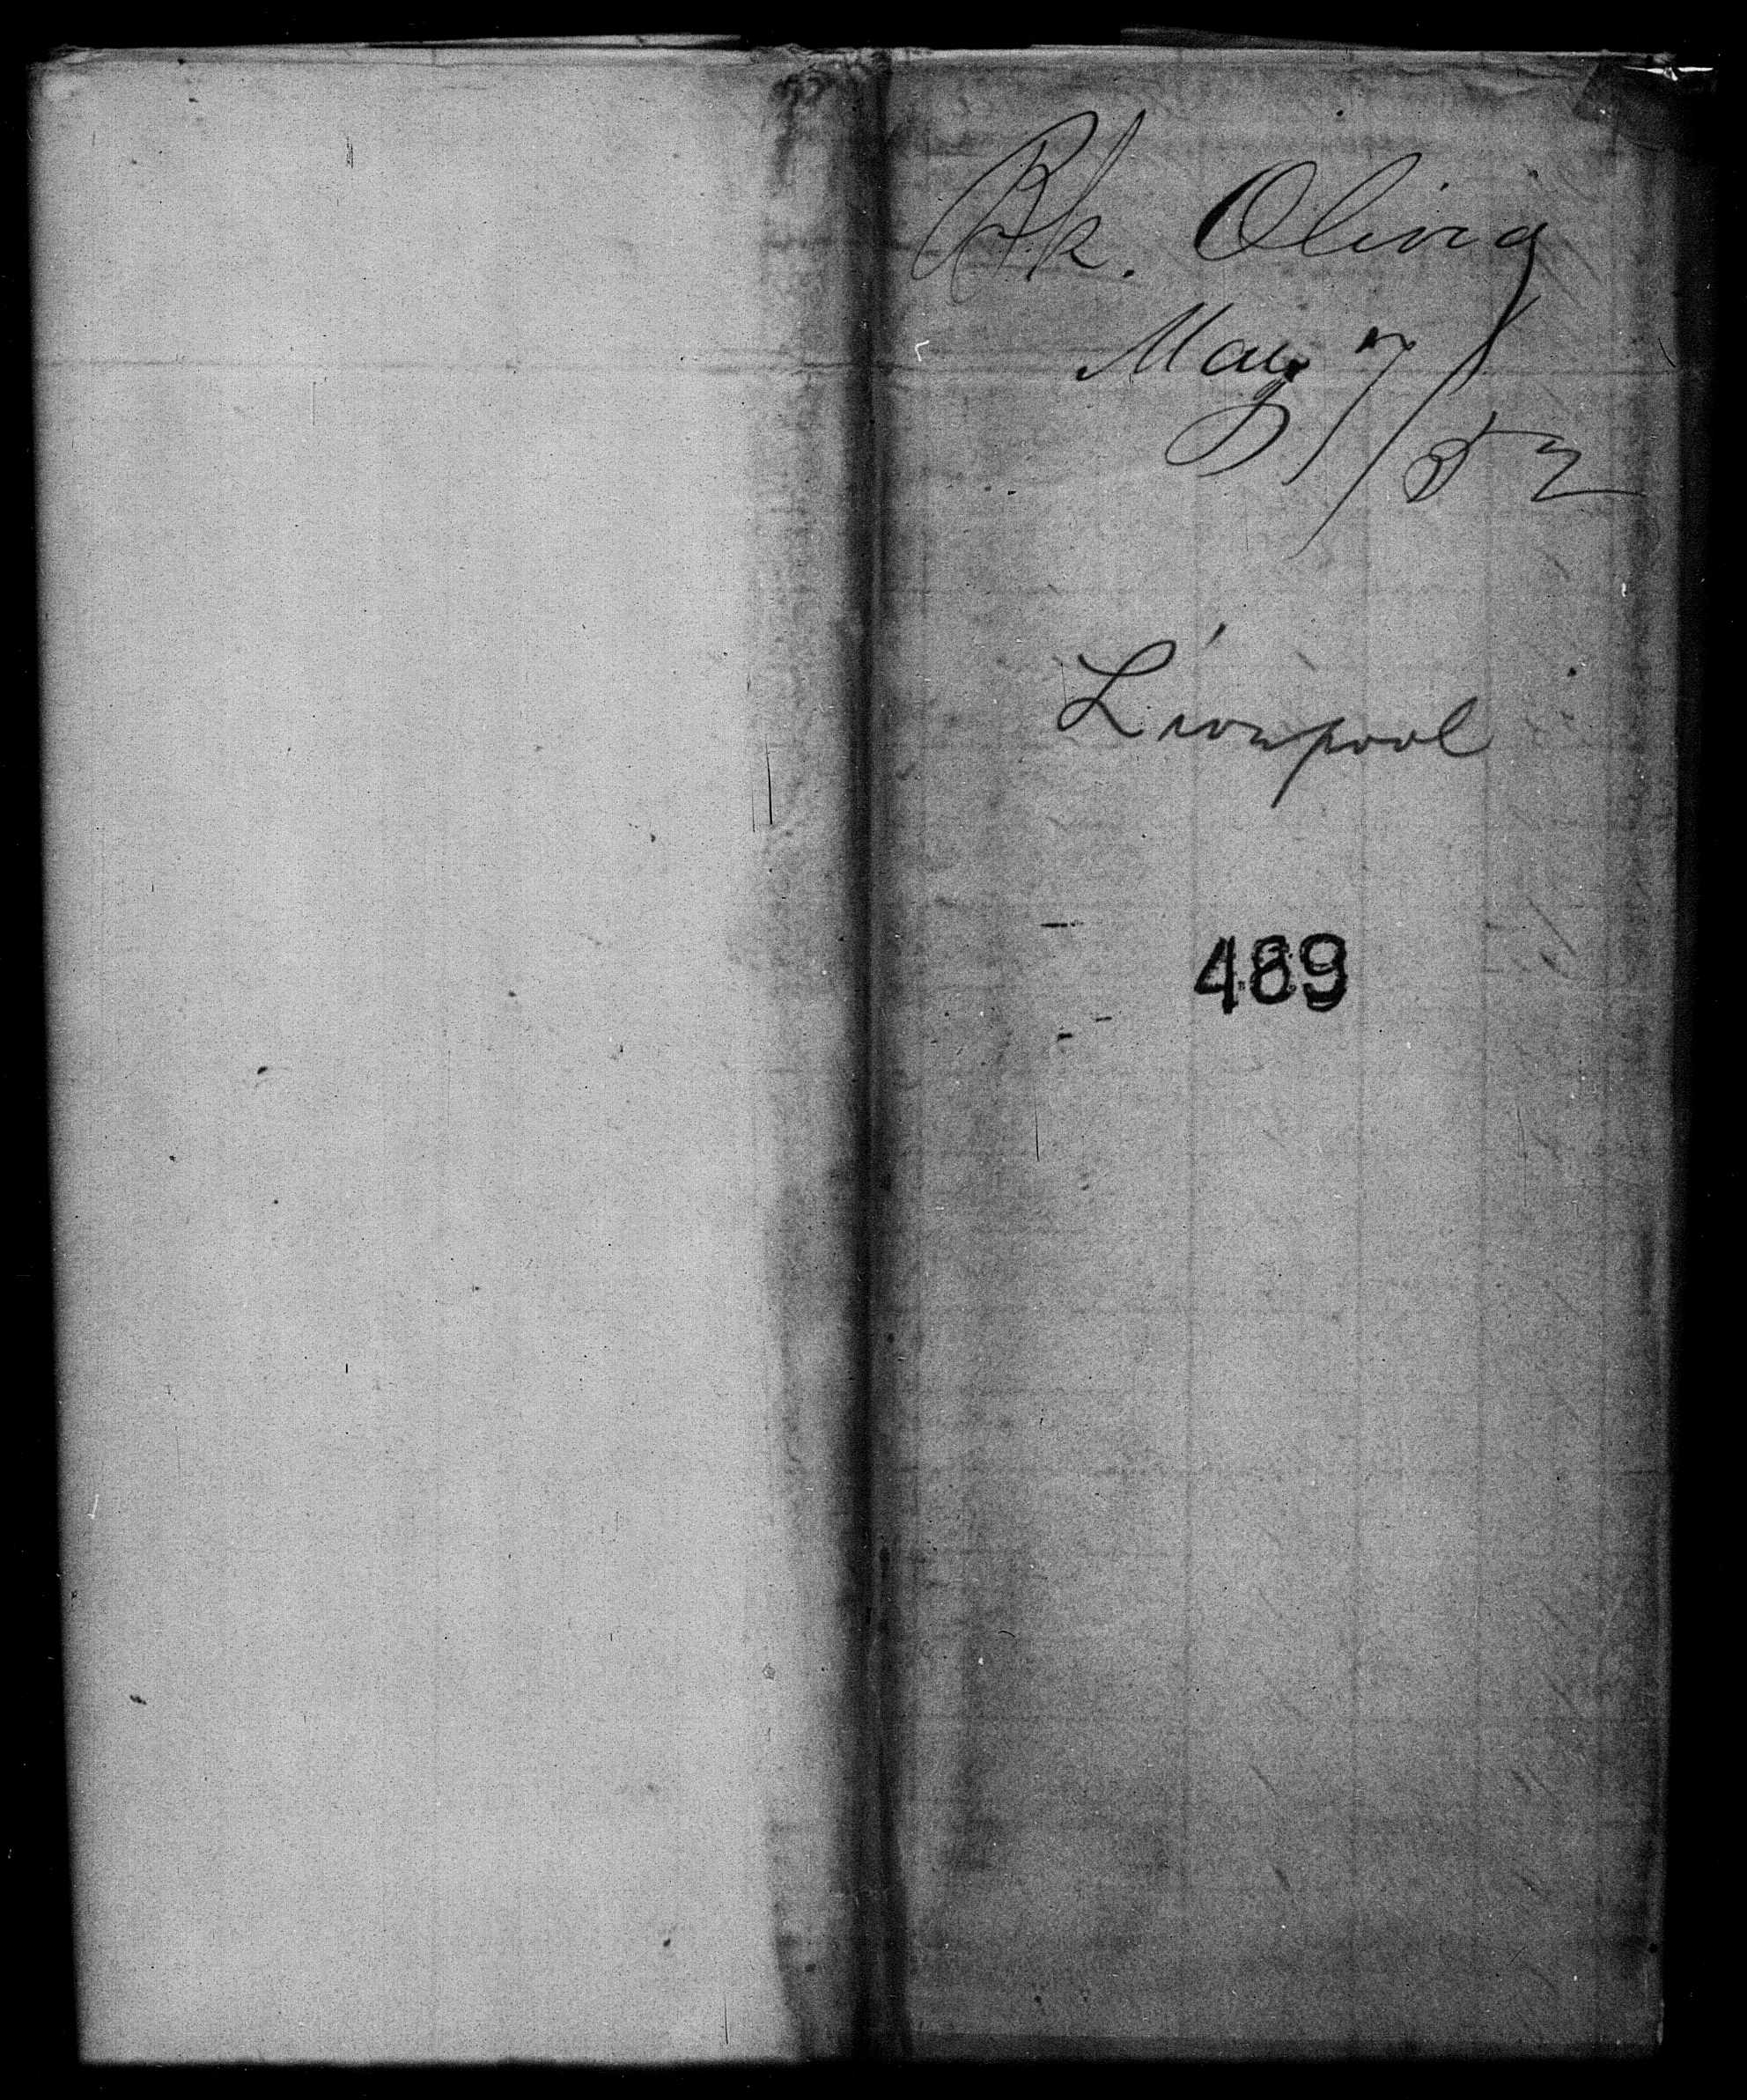 Bk. Olivia
May 7/52
Liverpool
469